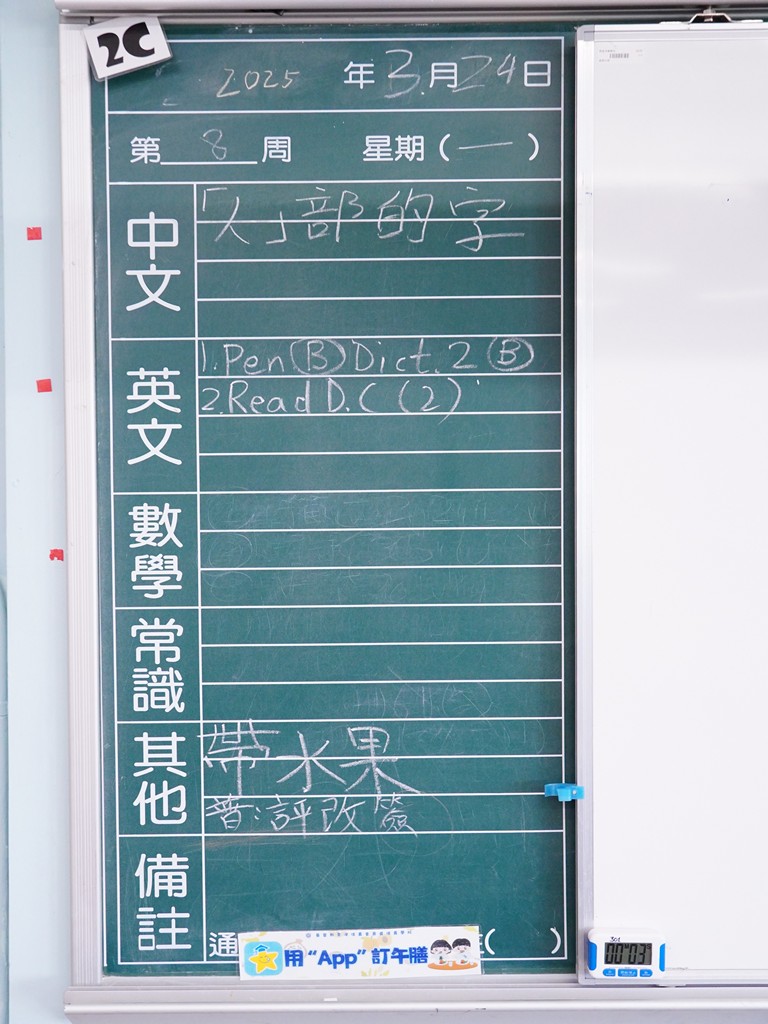 2C
2025 年 3 月 24 日
第 8 周 星期 ( 一 )
中文
「人」部的字
英文
1. Pen Ⓑ Dict. 2 Ⓑ
2. Read D.C (2)
數學
常識
其他
帶水果
普:評改簽
備註
通 ( )
用“App”訂午膳